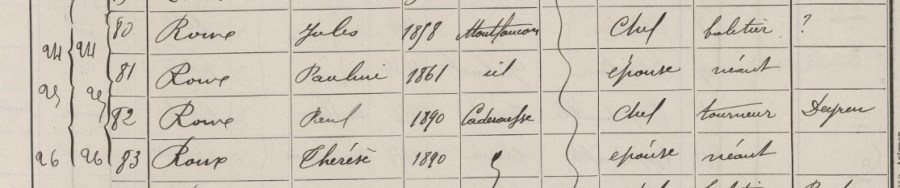 24 24 80 Roux Jules 1858 Montfaucon Chef ?
81 Roux Pauline 1861 id épouse néant
25 25 82 Roux Paul 1890 Caderousse Chef tourneur
26 26 83 Roux Thérèse 1890 épouse néant